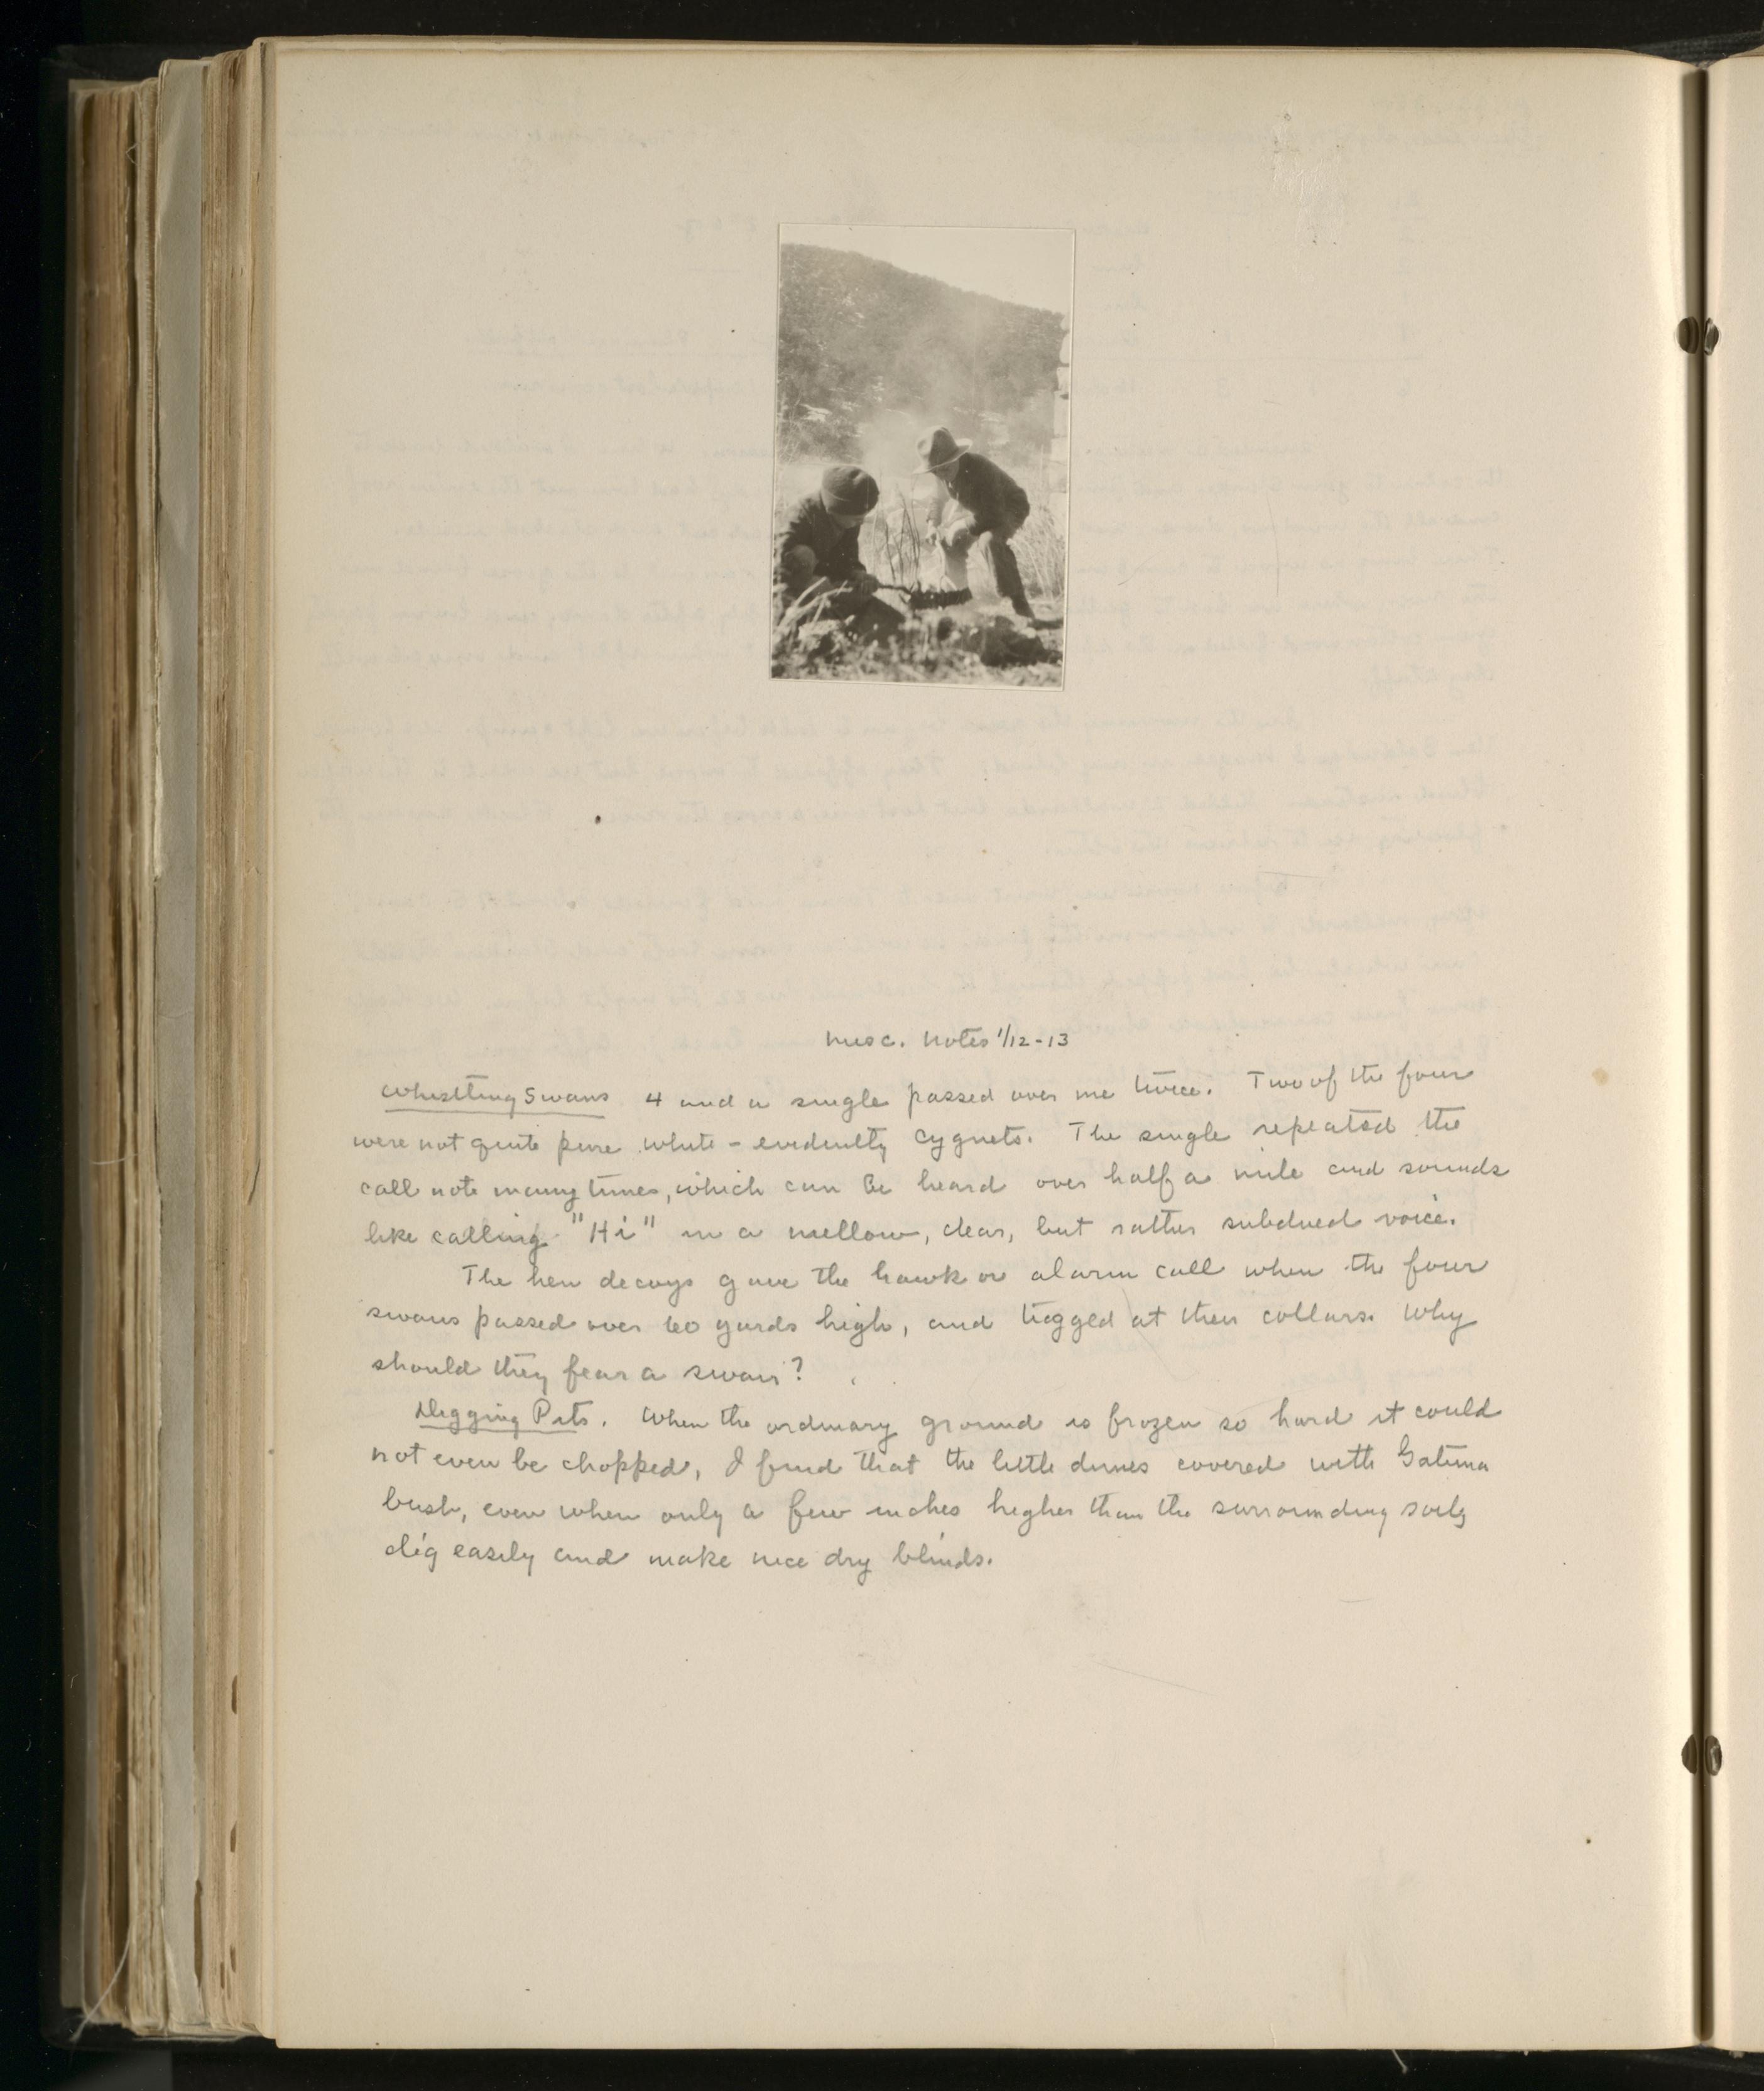 Misc. Notes 1/12-13
Whistling Swans 4 and a single passed over me twice. Two of the four
were not quite pure white - evidently cygnets. The single repeated the
call note many times, which can be heard over half a mile and sounds
like calling "Hi" in a mellow, clear, but rather subdued voice.
The hen decoys gave the hawk or alarm call when the four
swans passed over 60 yards high, and tugged at their collars. Why
should they fear a swan?
Digging Pits. When the ordinary ground is frozen so hard it could
not even be chopped, I find that the little dunes covered with Gatuna
bush, even when only a few inches higher than the surrounding soil,
dig easily and make nice dry blinds.